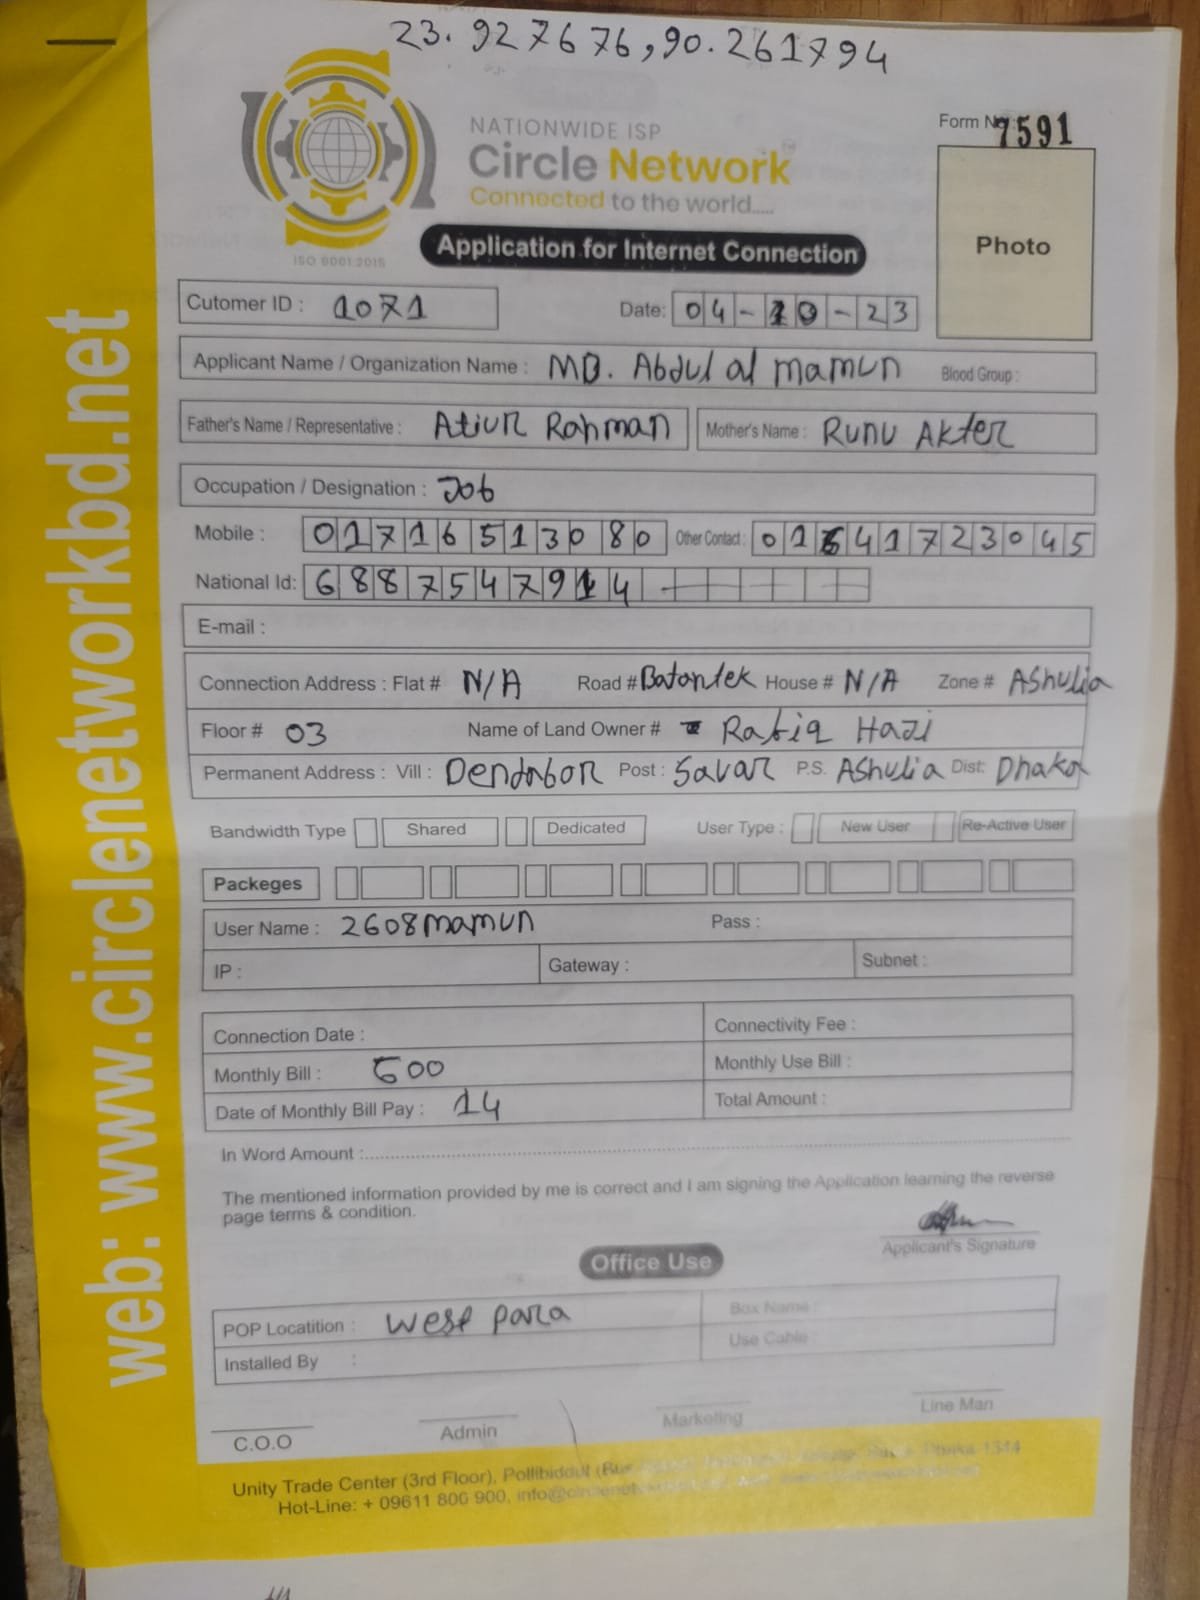 23.927676,90.261794
NATIONWIDE ISP
Form No: 7591
Circle Network™
Connected to the world.....
ISO 9001:2015
Application for Internet Connection
Photo
Cutomer ID : 1071
Date: 04-10-23
Applicant Name / Organization Name : MD. Abdul al mamun Blood Group :
Father's Name / Representative : Atiur Rahman Mother's Name : Runu Akter
Occupation / Designation : Job
Mobile : 01716513080 Other Contact : 01641723045
National Id: 6887547914
E-mail :
Connection Address : Flat # N/A Road # Batantek House # N/A Zone # Ashulia
Floor # 03 Name of Land Owner # Rafiq Hazi
Permanent Address : Vill : Dendabor Post : Savar P.S. Ashulia Dist: Dhaka
Bandwidth Type Shared Dedicated User Type : New User Re-Active User
Packeges
User Name : 2608mamun Pass :
IP : Gateway : Subnet :
Connection Date : Connectivity Fee :
Monthly Bill : 500 Monthly Use Bill :
Date of Monthly Bill Pay : 14 Total Amount :
In Word Amount :
The mentioned information provided by me is correct and I am signing the Application learning the reverse
page terms & condition.
Applicant's Signature
Office Use
POP Locatition : West para Box Name :
Installed By : Use Cable :
C.O.O Admin Marketing Line Man
Unity Trade Center (3rd Floor), Pollibiddut Dhaka-1344
Hot-Line: + 09611 800 900,
web: www.circlenetworkbd.net